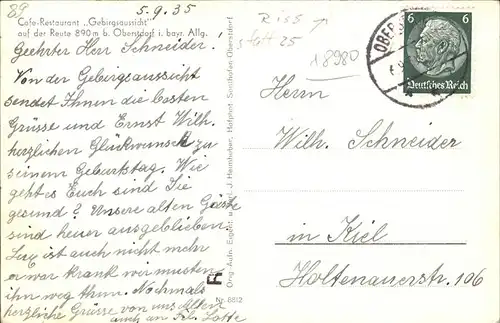 89
5.9.35
Cafe-Restaurant „Gebirgsaussicht"
auf der Reute 890 m b. Oberstdorf i. bayr. Allg.
Geehrter Herr Schneider.
Von der Gebirgsaussicht
sendet Ihnen die besten
Grüsse und Ernst Wilh.
herzlichen Glückwunsch zu
seinem Geburtstag. Wie
geht es Euch sind Sie
gesund? Unsere alten Gäste
sind heuer ausgeblieben.
Lux ist auch nicht mehr
er war krank wir mussten
ihn weg thun. Nochmals
herzliche Grüsse von uns Allen
auch an Frl. Lotte
Orig. Aufn. Expert u. Verl. J. Heimhuber, Hofphot. Sonthofen-Oberstdorf
R
Nr. 8812
Riss
statt 25
18980
6 6
Deutsches Reich
Herrn
Wilh. Schneider
in Kiel
Holtenauerstr. 106